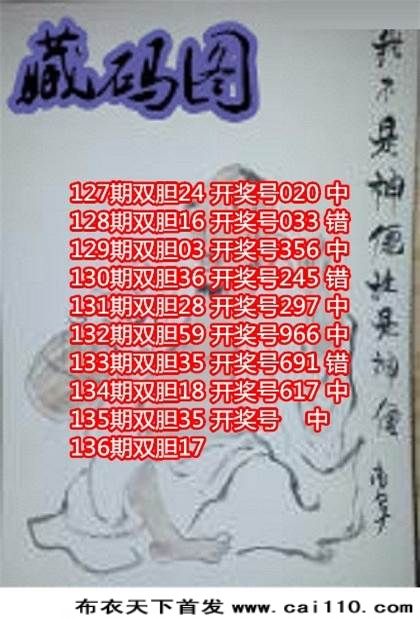 藏码图
我不是神便胜是神僊
127期双胆24 开奖号020 中
128期双胆16 开奖号033 错
129期双胆03 开奖号356 中
130期双胆36 开奖号245 错
131期双胆28 开奖号297 中
132期双胆59 开奖号966 中
133期双胆35 开奖号691 错
134期双胆18 开奖号617 中
135期双胆35 开奖号 中
136期双胆17
布衣天下首发 www.cai110.com